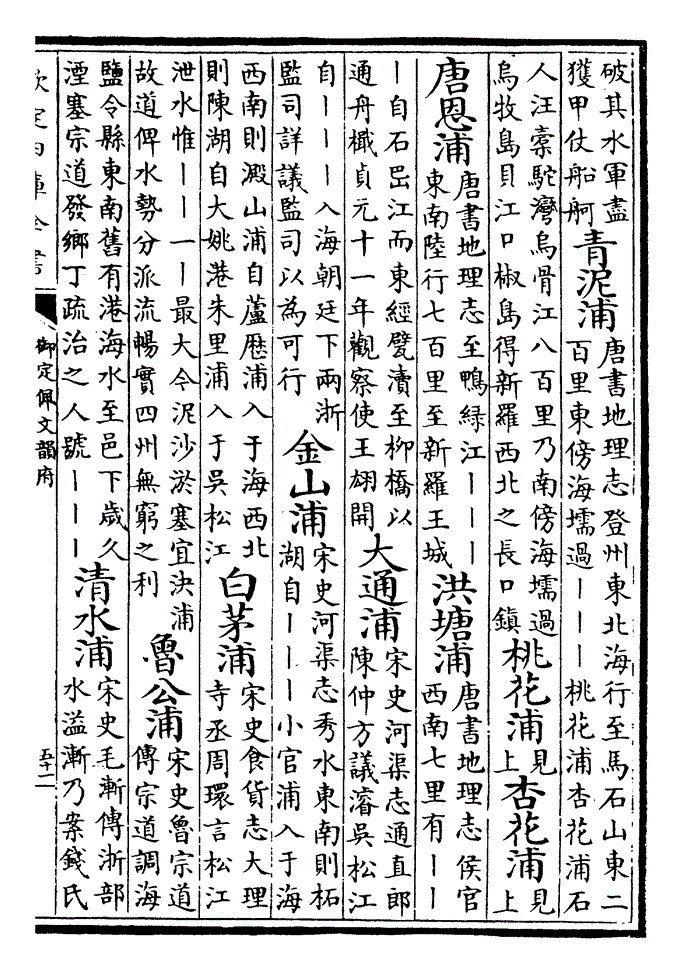 破其水軍盡
獲甲仗船舸
青泥浦
唐書地理志登州東北海行至馬石山東二
百里東傍海壖過丨丨丨桃花浦杏花浦石
人汪槖駝灣烏骨江八百里乃南傍海壖過
烏牧島貝江口椒島得新羅西北之長口鎮
桃花浦
見
上
杏花浦
見
上
唐恩浦
唐書地理志至鴨緑江丨丨丨
東南陸行七百里至新羅王城
洪塘浦
唐書地理志侯官
西南七里有丨丨
丨自石岊江而東經甓瀆至柳橋以
通舟檝貞元十一年觀察使王翃開
大通浦
宋史河渠志通直郎
陳仲方議濬吳松江
自丨丨丨入海朝廷下兩浙
監司詳議監司以為可行
金山浦
宋史河渠志秀水東南則柘
湖自丨丨丨小官浦入于海
西南則澱山浦自蘆歴浦入于海西北
則陳湖自大姚港朱里浦入于吳松江
白茅浦
宋史食貨志大理
寺丞周環言松江
泄水惟丨丨一丨最大今泥沙淤塞宜決浦
故道俾水勢分派流暢實四州無窮之利
魯公浦
宋史魯宗道
傳宗道調海
鹽令縣東南舊有港海水至邑下歲久
湮塞宗道發鄉丁疏治之人號丨丨丨
清水浦
宋史毛漸傳浙部
水溢漸乃案錢氏
欽定四庫全書
御定佩文韻府
五十二